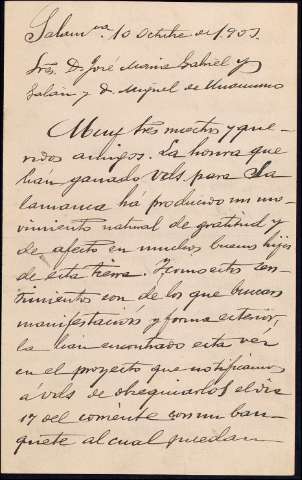 Salam.ca 10 Octubre de 1.903.
Sres. D. José Maria Gabriel y
Galán y D. Miguel de Unamuno
Muy sres nuestros y que-
ridos amigos. La honra que
han ganado Vds. para Sa
lamanca há producido un mo-
vimiento natural de gratitud y
de afecto en muchos buenos hijos
de esta tierra. Y como estos sen-
timientos son de los que buscan
manifestación y forma exterior,
la han encontrado esta vez
en el proyecto que notificamos
á Vds de obsequiarlos el dia
17 del corriente con un ban-
quete al cual quedan